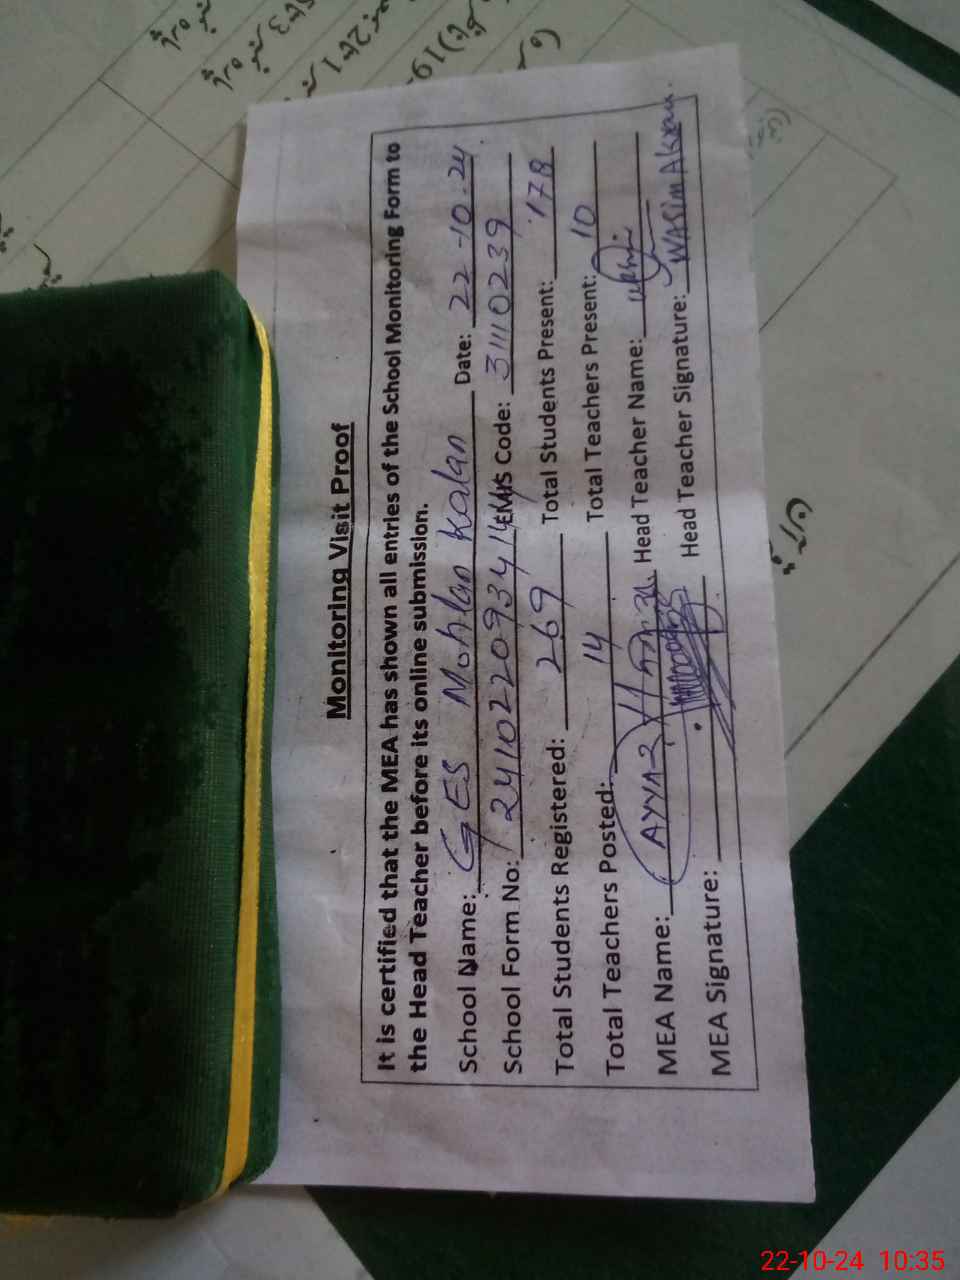 Monitoring Visit Proof
It is certified that the MEA has shown all entries of the School Monitoring Form to
the Head Teacher before its online submission.
School Name: GES Mohlan Kalan Date: 22-10-24
School Form No: EMIS Code: 31110239
Total Students Registered: 269 Total Students Present: 178
Total Teachers Posted: 14 Total Teachers Present: 10
MEA Name: Head Teacher Name:
MEA Signature: Head Teacher Signature: WASim AkRam
22-10-24 10:35